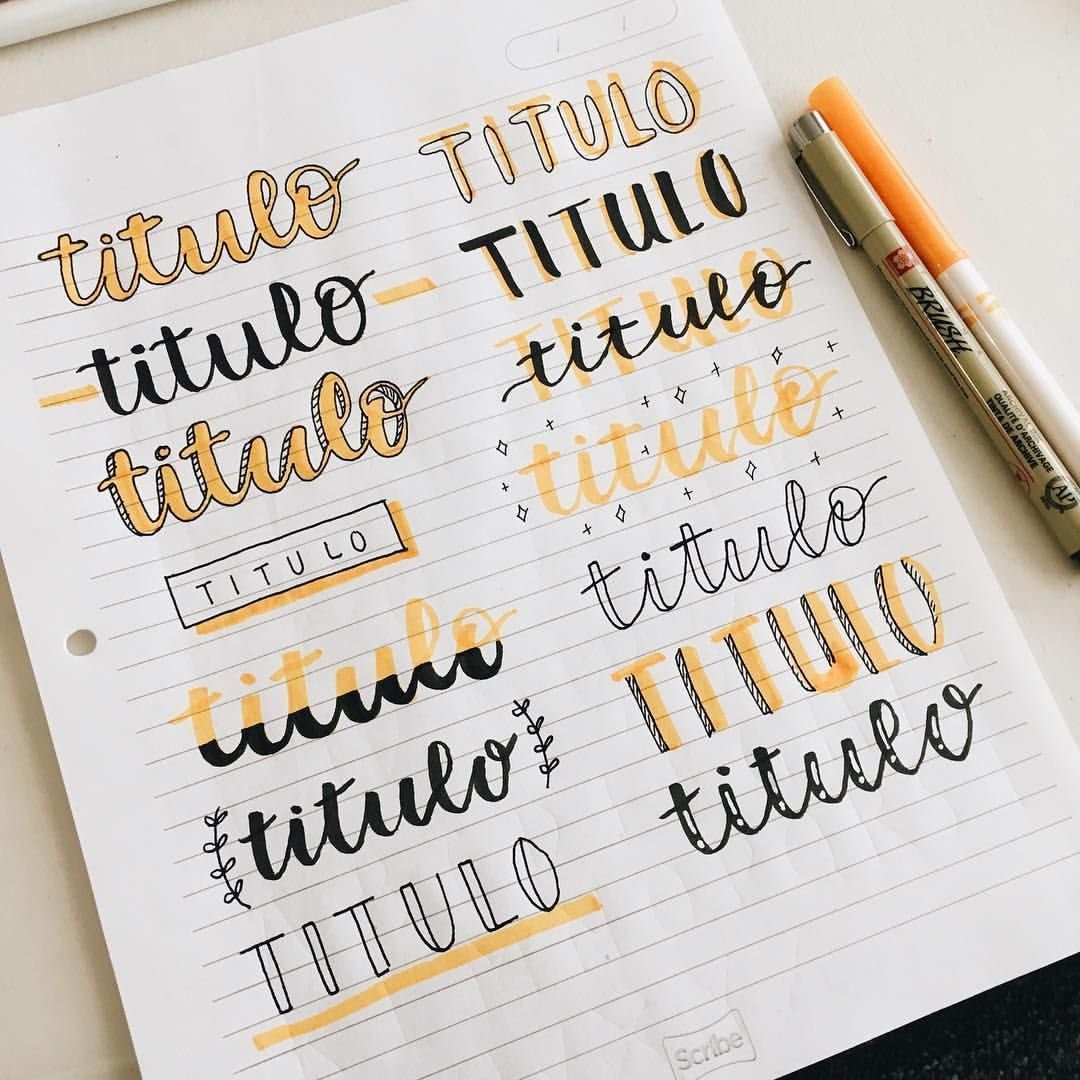 titulo
titulo
titulo
TITULO
titulo
titulo
TITULO
TITULO
TITULO
TITULO
titulo
titulo
titulo
TITULO
titulo
Scribe
BRUSH
QUALITÉ D'ARCHIVAGE
TINTA DE ARCHIVE
AP